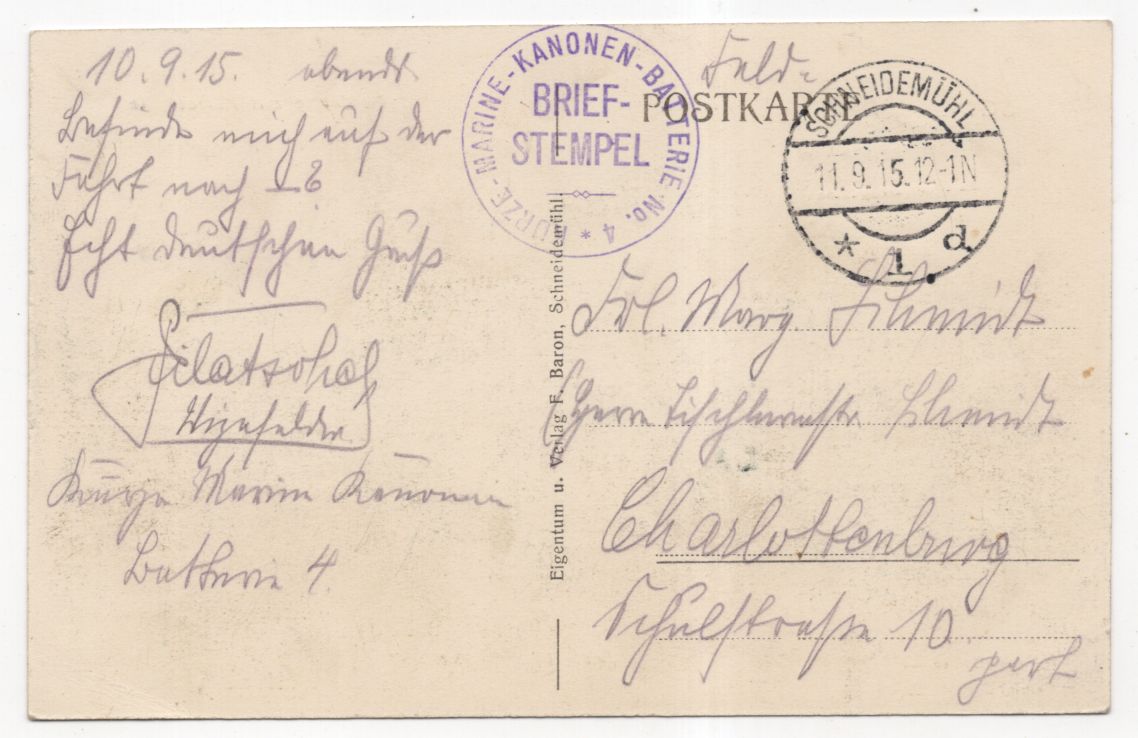 10.9.15. abends
Befinde mich auf der
Fahrt nach – ?
Echt deutschen Gruß
Vizefeldw.
Kurze Marine Kanonen
Batterie 4.
KURZE-MARINE-KANONEN-BATTERIE No. 4 *
BRIEF-
STEMPEL
Feld-
POSTKARTE
SCHNEIDEMÜHL
11.9.15.12-1N
* 1 d
Eigentum u. Verlag F. Baron, Schneidemühl
Frl. Marg. Schmidt
Herrn Tischlermstr. Schmidt
Charlottenburg
Schulstraße 10.
part